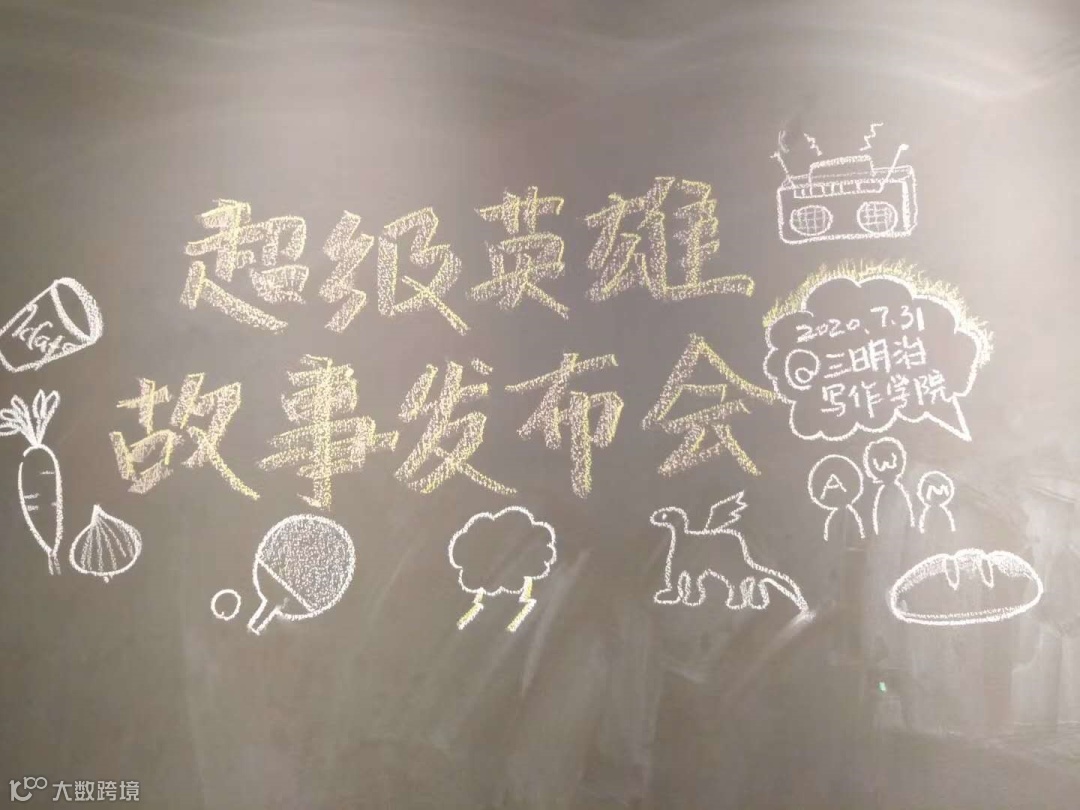 超级英雄
故事发布会
2020.7.31
@三明治
写作学院
A W M
Potato
大数跨境